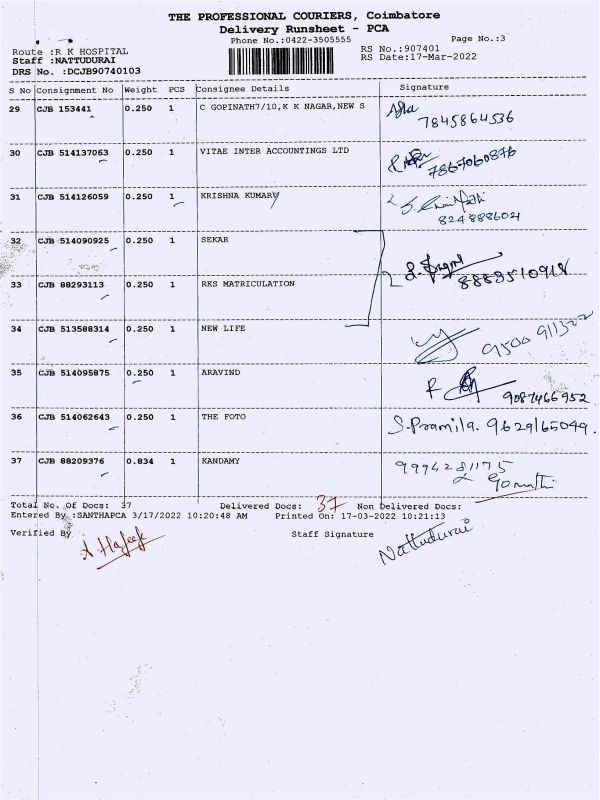 THE PROFESSIONAL COURIERS, Coimbatore
Delivery Runsheet - PCA
Phone No.:0422-3505555 Page No.:3
Route :R K HOSPITAL RS No.:907401
Staff :NATTUDURAI RS Date:17-Mar-2022
DRS No. :DCJB90740103
S No Consignment No Weight PCS Consignee Details Signature
29 CJB 153441 0.250 1 C GOPINATH7/10,K K NAGAR,NEW S
7845864536
30 CJB 514137063 0.250 1 VITAE INTER ACCOUNTINGS LTD
7867060876
31 CJB 514126059 0.250 1 KRISHNA KUMARV
824888604
32 CJB 514090925 0.250 1 SEKAR
8883510918
33 CJB 88293113 0.250 1 RKS MATRICULATION
34 CJB 513588314 0.250 1 NEW LIFE
9500 911322
35 CJB 514095875 0.250 1 ARAVIND
9087466952
36 CJB 514062643 0.250 1 THE FOTO S.Pramila. 9629165049.
37 CJB 88209376 0.834 1 KANDAMY 9994281175
Gomathi
Total No. Of Docs: 37 Delivered Docs: 37 Non Delivered Docs:
Entered By :SANTHAPCA 3/17/2022 10:20:48 AM Printed On: 17-03-2022 10:21:13
Verified By Staff Signature
A. Hafeek Nattudurai